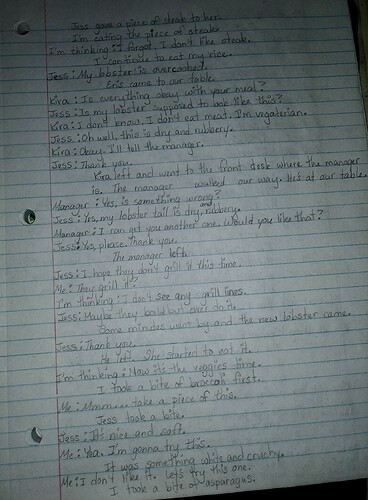 Jess gave a piece of steak to her.
I'm eating the piece of steak.
I'm thinking: I forgot. I don't like steak.
I continue to eat my rice.
Jess: My lobster is overcooked.
came to our table.
Kira: Is everything okay with your meal?
Jess: Is my lobster supposed to look like this?
Kira: I don't know. I don't eat meat. I'm vegaterian.
Jess: Oh well, this is dry and rubbery.
Kira: Okay. I'll tell the manager.
Jess: Thank you.
Kira left and went to the front desk where the manager
is. The manager walked our way. He's at our table.
Manager: Yes, is something wrong?
Jess: Yes, my lobster tail is dry and rubbery.
Manager: I can get you another one. Would you like that?
Jess: Yes, please. Thank you.
The manager left.
Jess: I hope they don't grill it this time.
Me: They grill it?
I'm thinking: I don't see any grill lines.
Jess: Maybe they but over do it.
Some minutes went by and the new lobster came.
Jess: Thank you.
He left. She started to eat it.
I'm thinking: Now it's the veggies time.
I took a bite of broccoli first.
Me: Mmm... take a piece of this.
Jess took a bite.
Jess: It's nice and soft.
Me: Yea. I'm gonna try this.
It was something white and cruchy.
Me: I don't like it. Let's try this one.
I took a bite of asparagus.